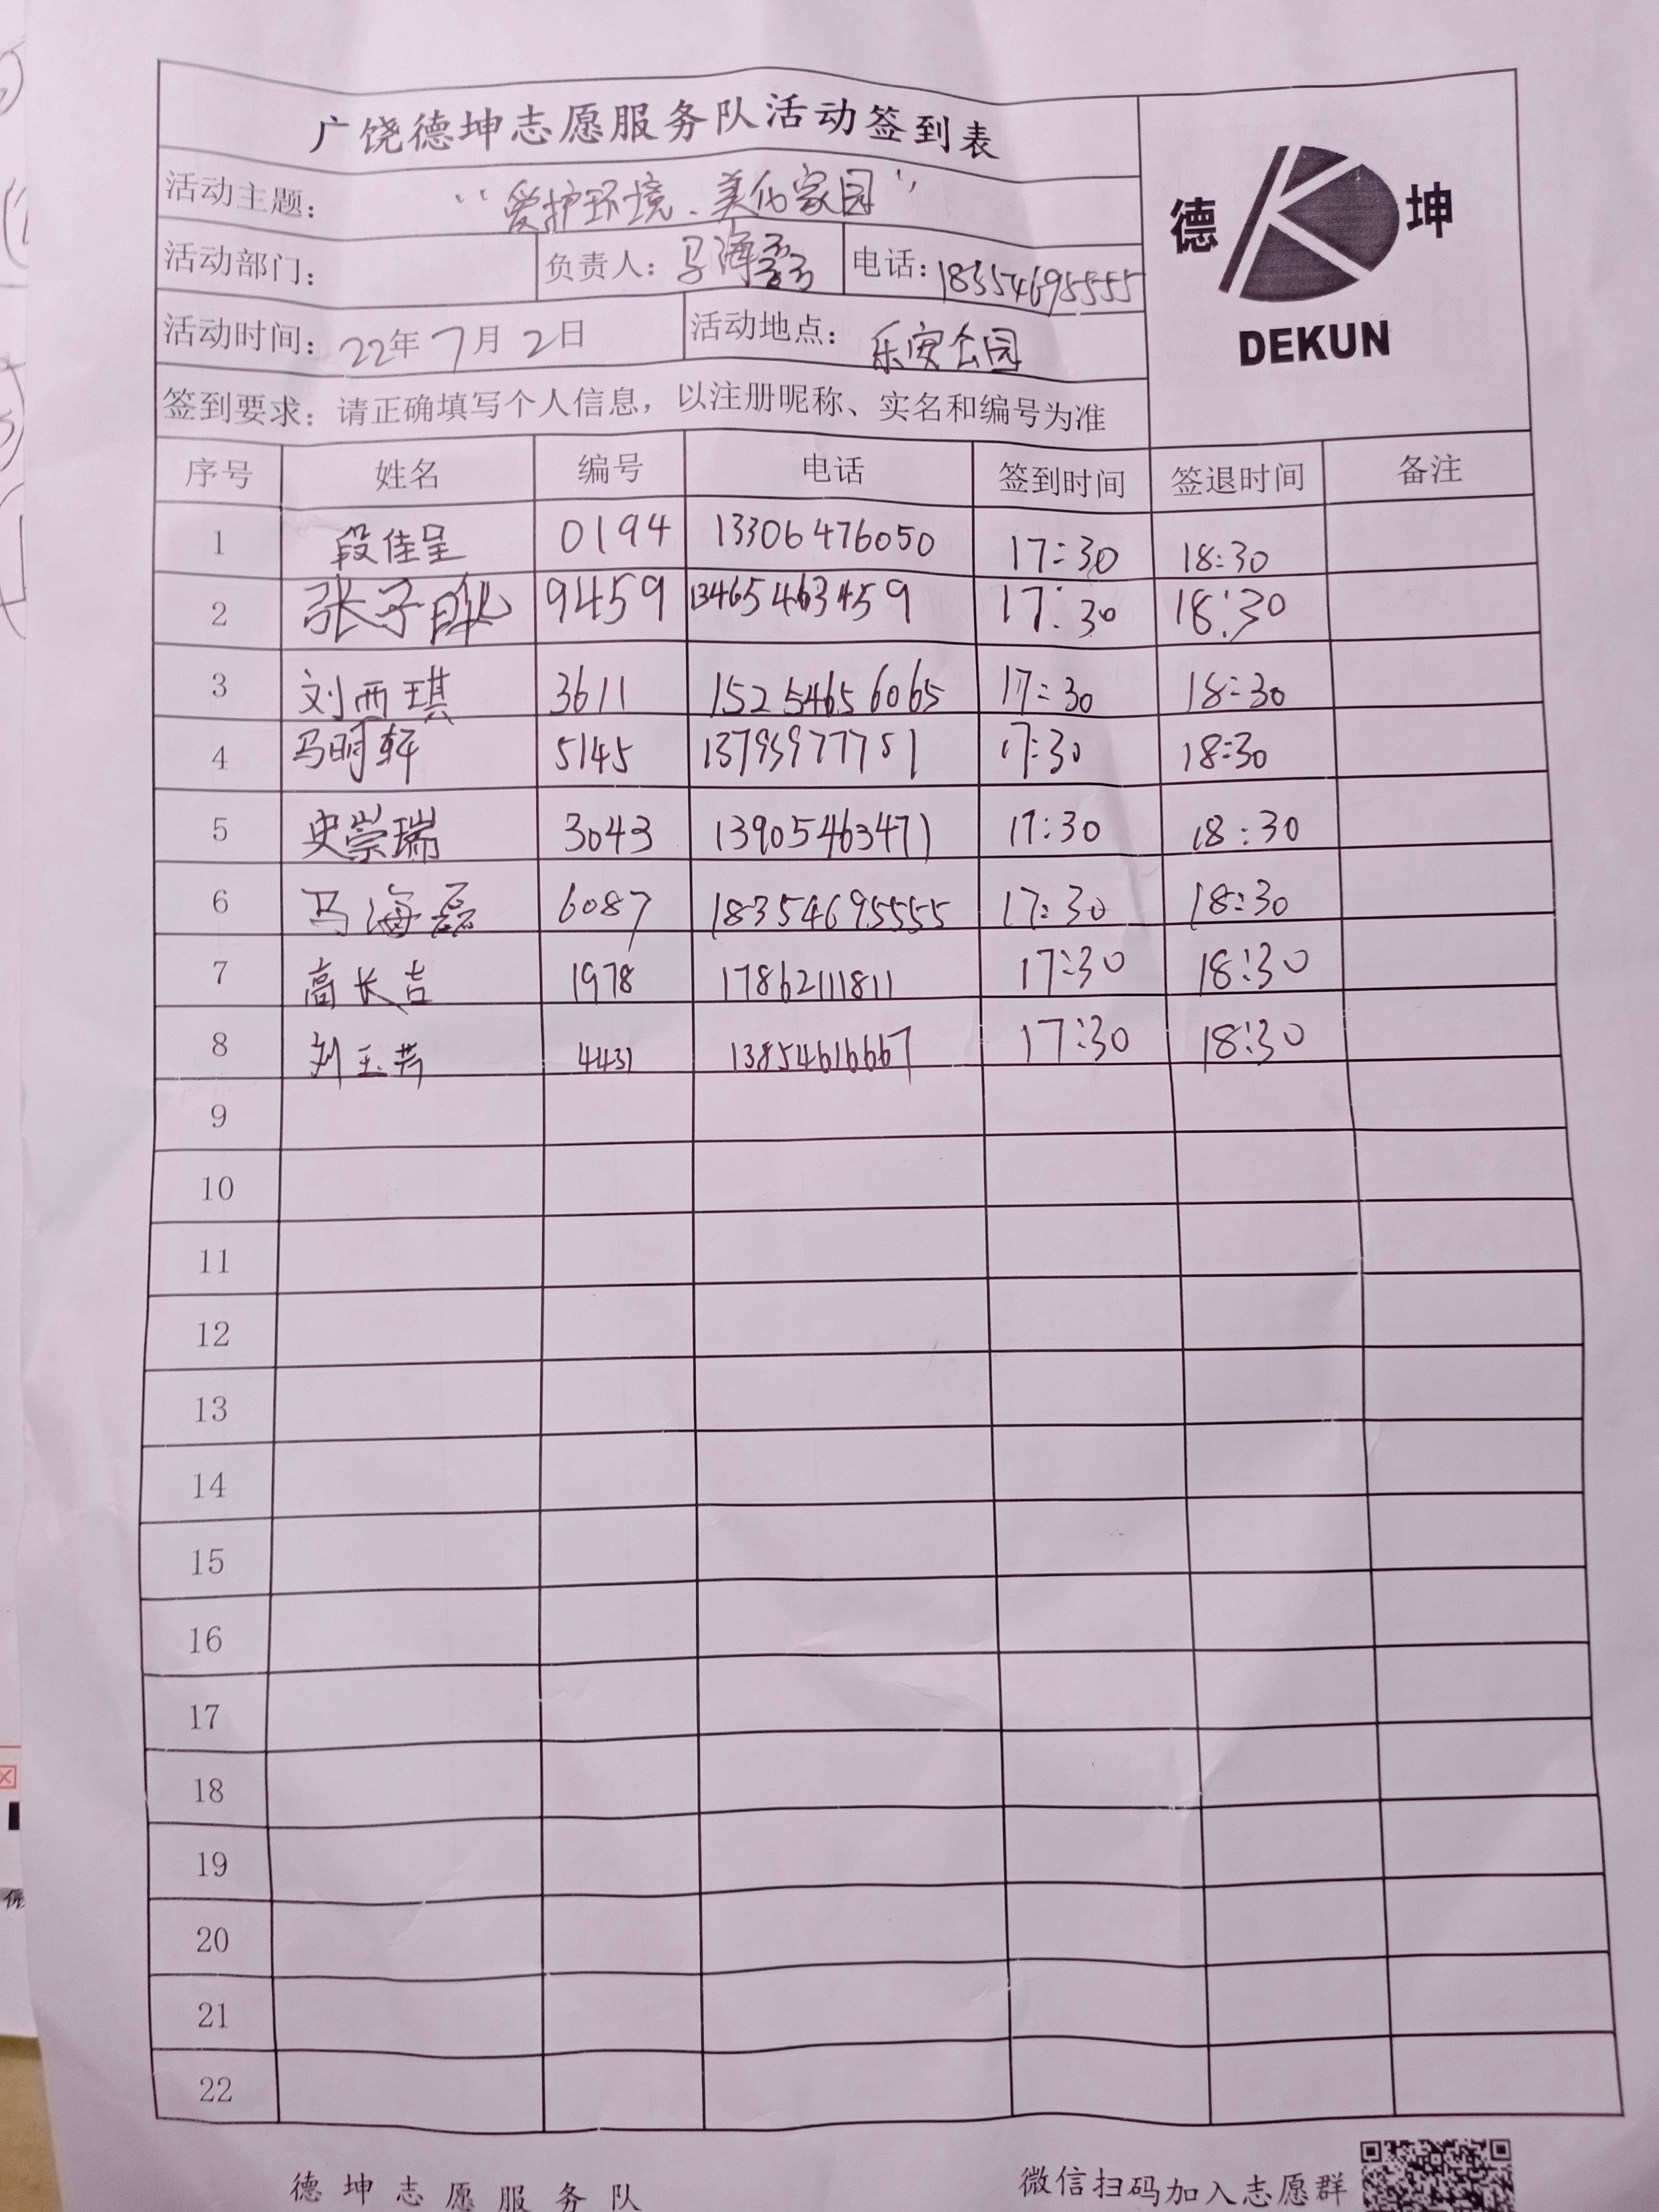 广饶德坤志愿服务队活动签到表
活动主题： “爱护环境、美化家园”
德 坤
DEKUN
活动部门： 负责人：马海磊 电话：18354695555
活动时间：22年7月2日 活动地点：乐安公园
签到要求：请正确填写个人信息，以注册昵称、实名和编号为准
序号 姓名 编号 电话 签到时间 签退时间 备注
1 段佳呈 0194 13306476050 17:30 18:30
2 张子 9459 13465463459 17:30 18:30
3 刘西琪 3611 15254656065 17:30 18:30
4 马明轩 5145 13793977751 17:30 18:30
5 史崇瑞 3043 13905463471 17:30 18:30
6 马海磊 6087 18354695555 17:30 18:30
7 高长吉 1978 17862111811 17:30 18:30
8 刘玉芹 4431 13854616667 17:30 18:30
9
10
11
12
13
14
15
16
17
18
19
20
21
22
德坤志愿服务队 微信扫码加入志愿群